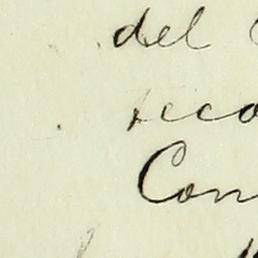 del
reco
Con